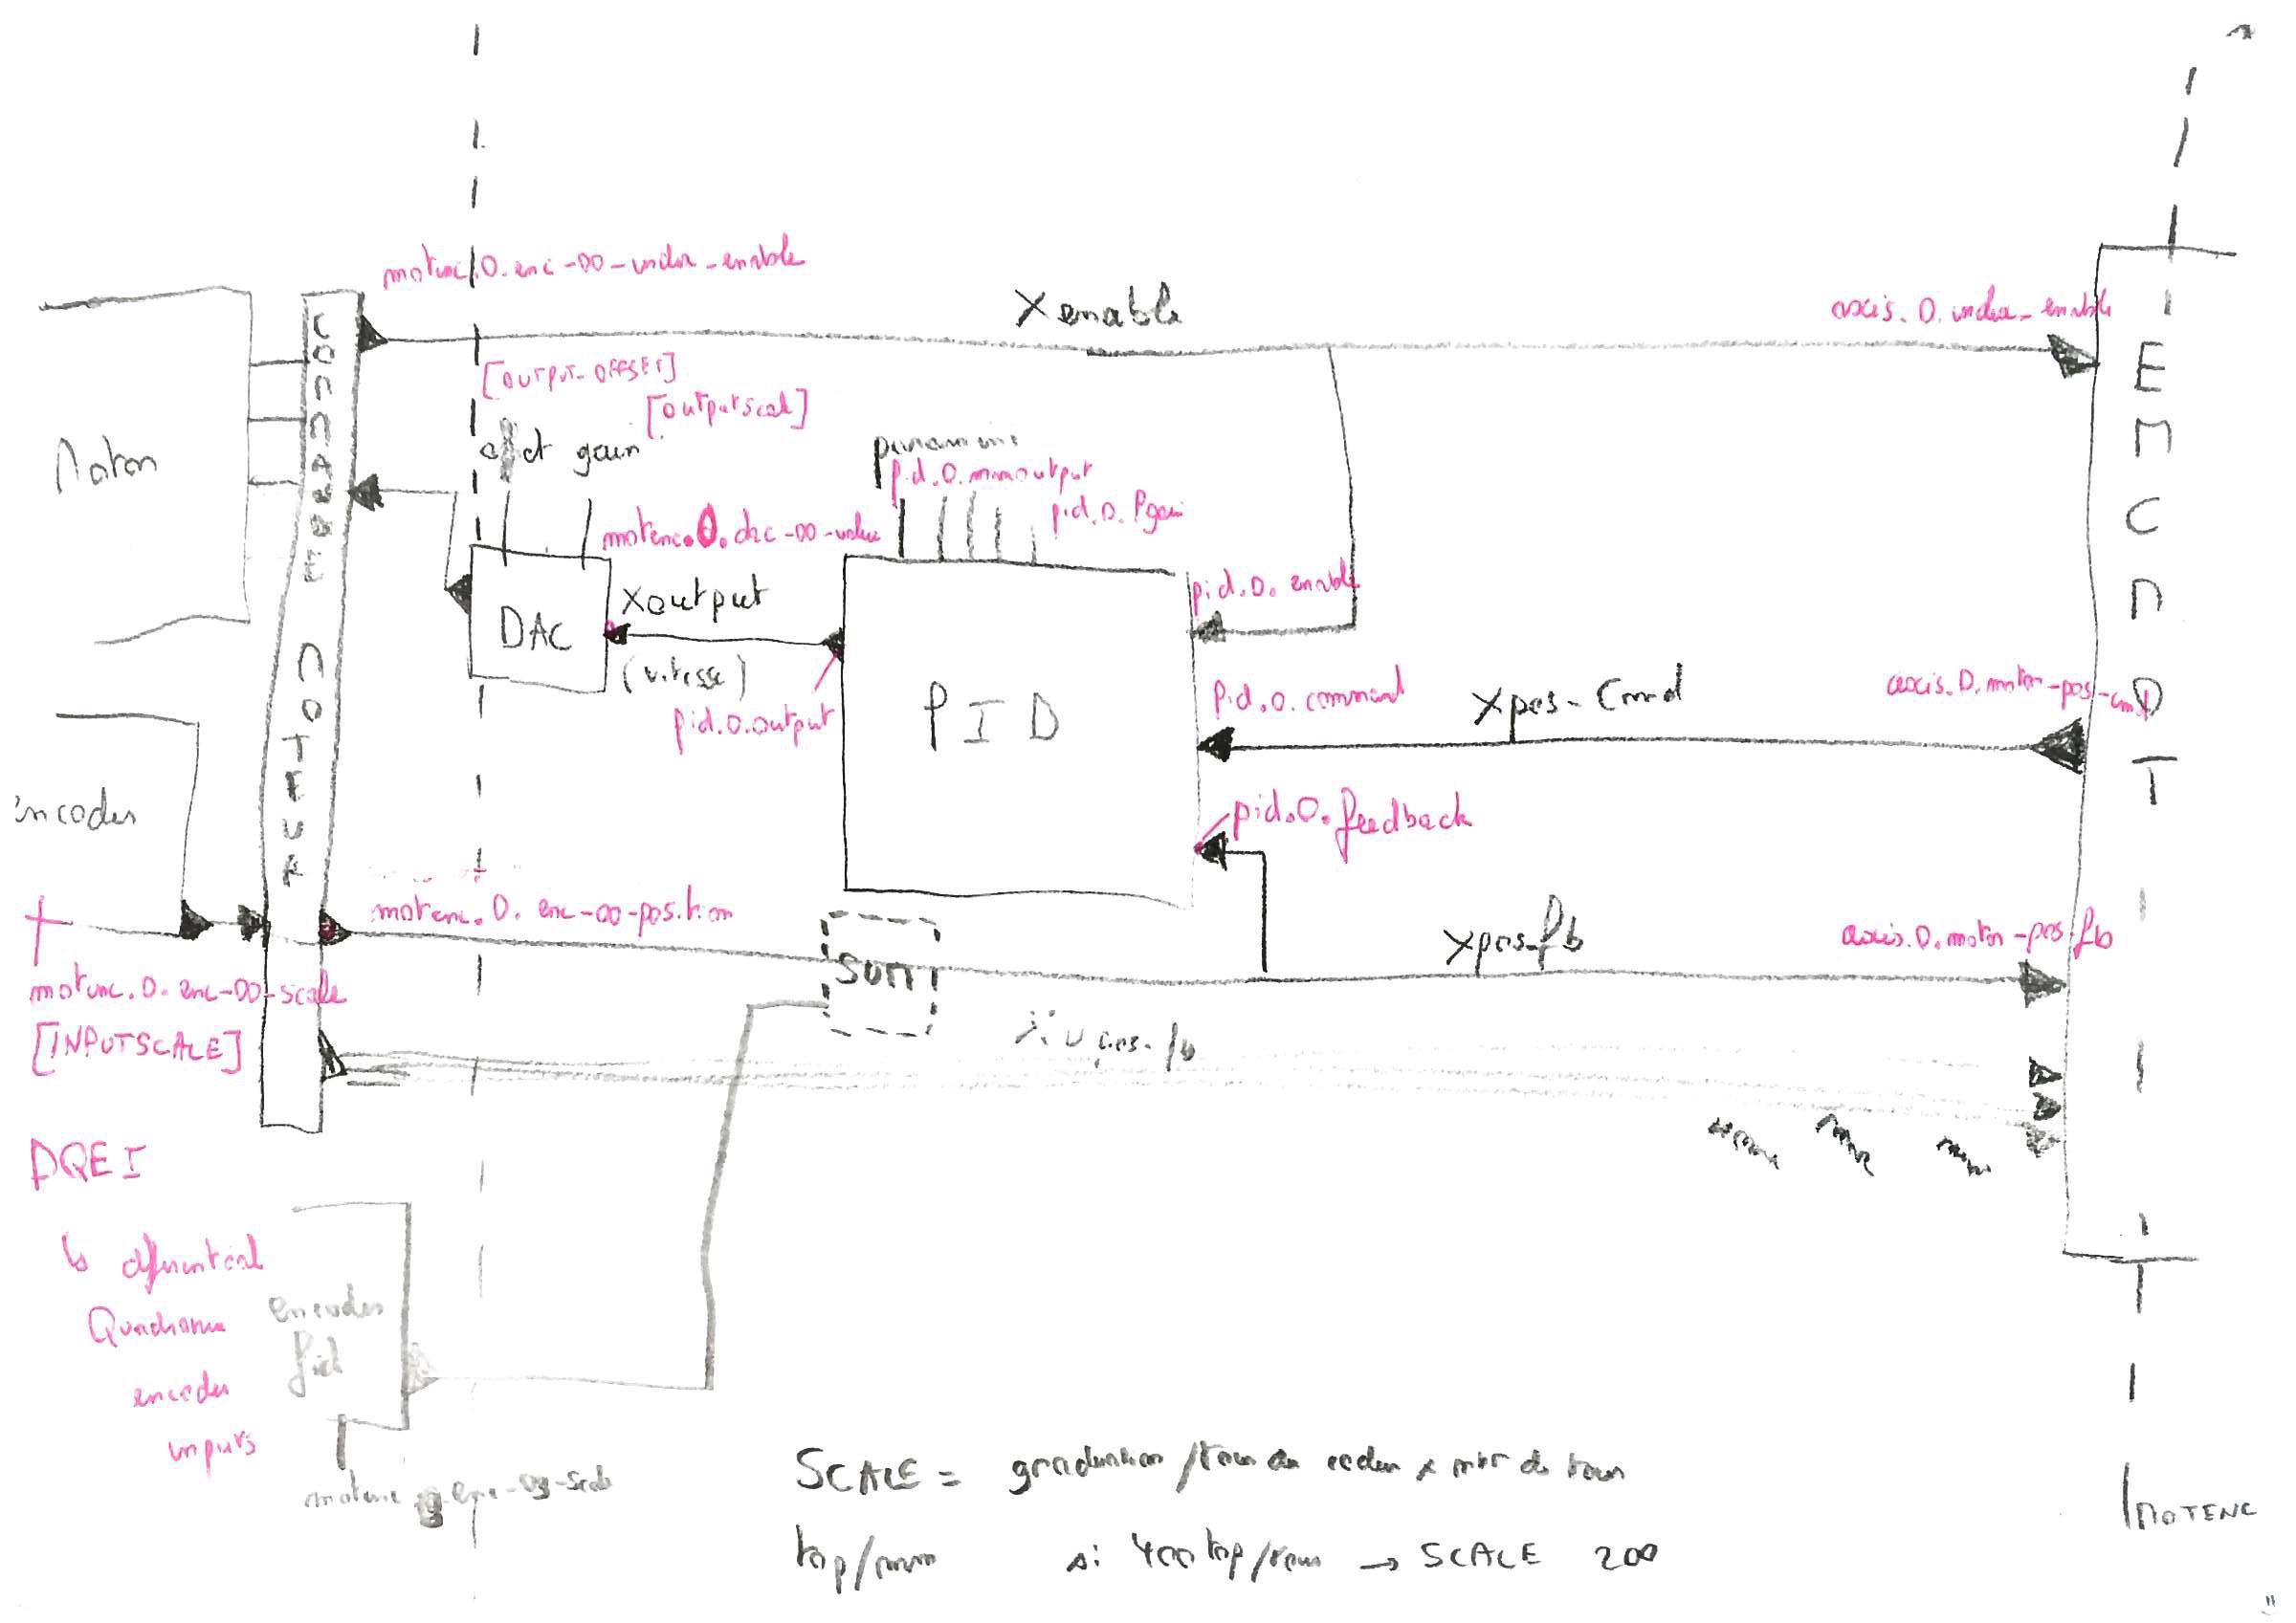 motenc.0.enc-00-index-enable
Xenable
axis.0.index-enable
[OUTPUT-OFFSET]
[outputscal]
gain
pid.0.maxoutput
pid.0.Pgain
motenc.0.dac-00-value
Xoutput
(vitesse)
DAC
pid.0.output
PID
pid.0.enable
pid.0.command
Xpos-Cmd
axis.0.motor-pos-cmd
pid.0.feedback
encoder
motenc.0.enc-00-position
SUM
Xpos-fb
axis.0.motor-pos-fb
motenc.0.enc-00-scale
[INPUTSCALE]
DQEI
↳ differential
Quadrature
encoder
inputs
encoder
SCALE = graduation/tour du coder x nbr de tour
top/mm si 400 top/tour → SCALE 200
MOTENC